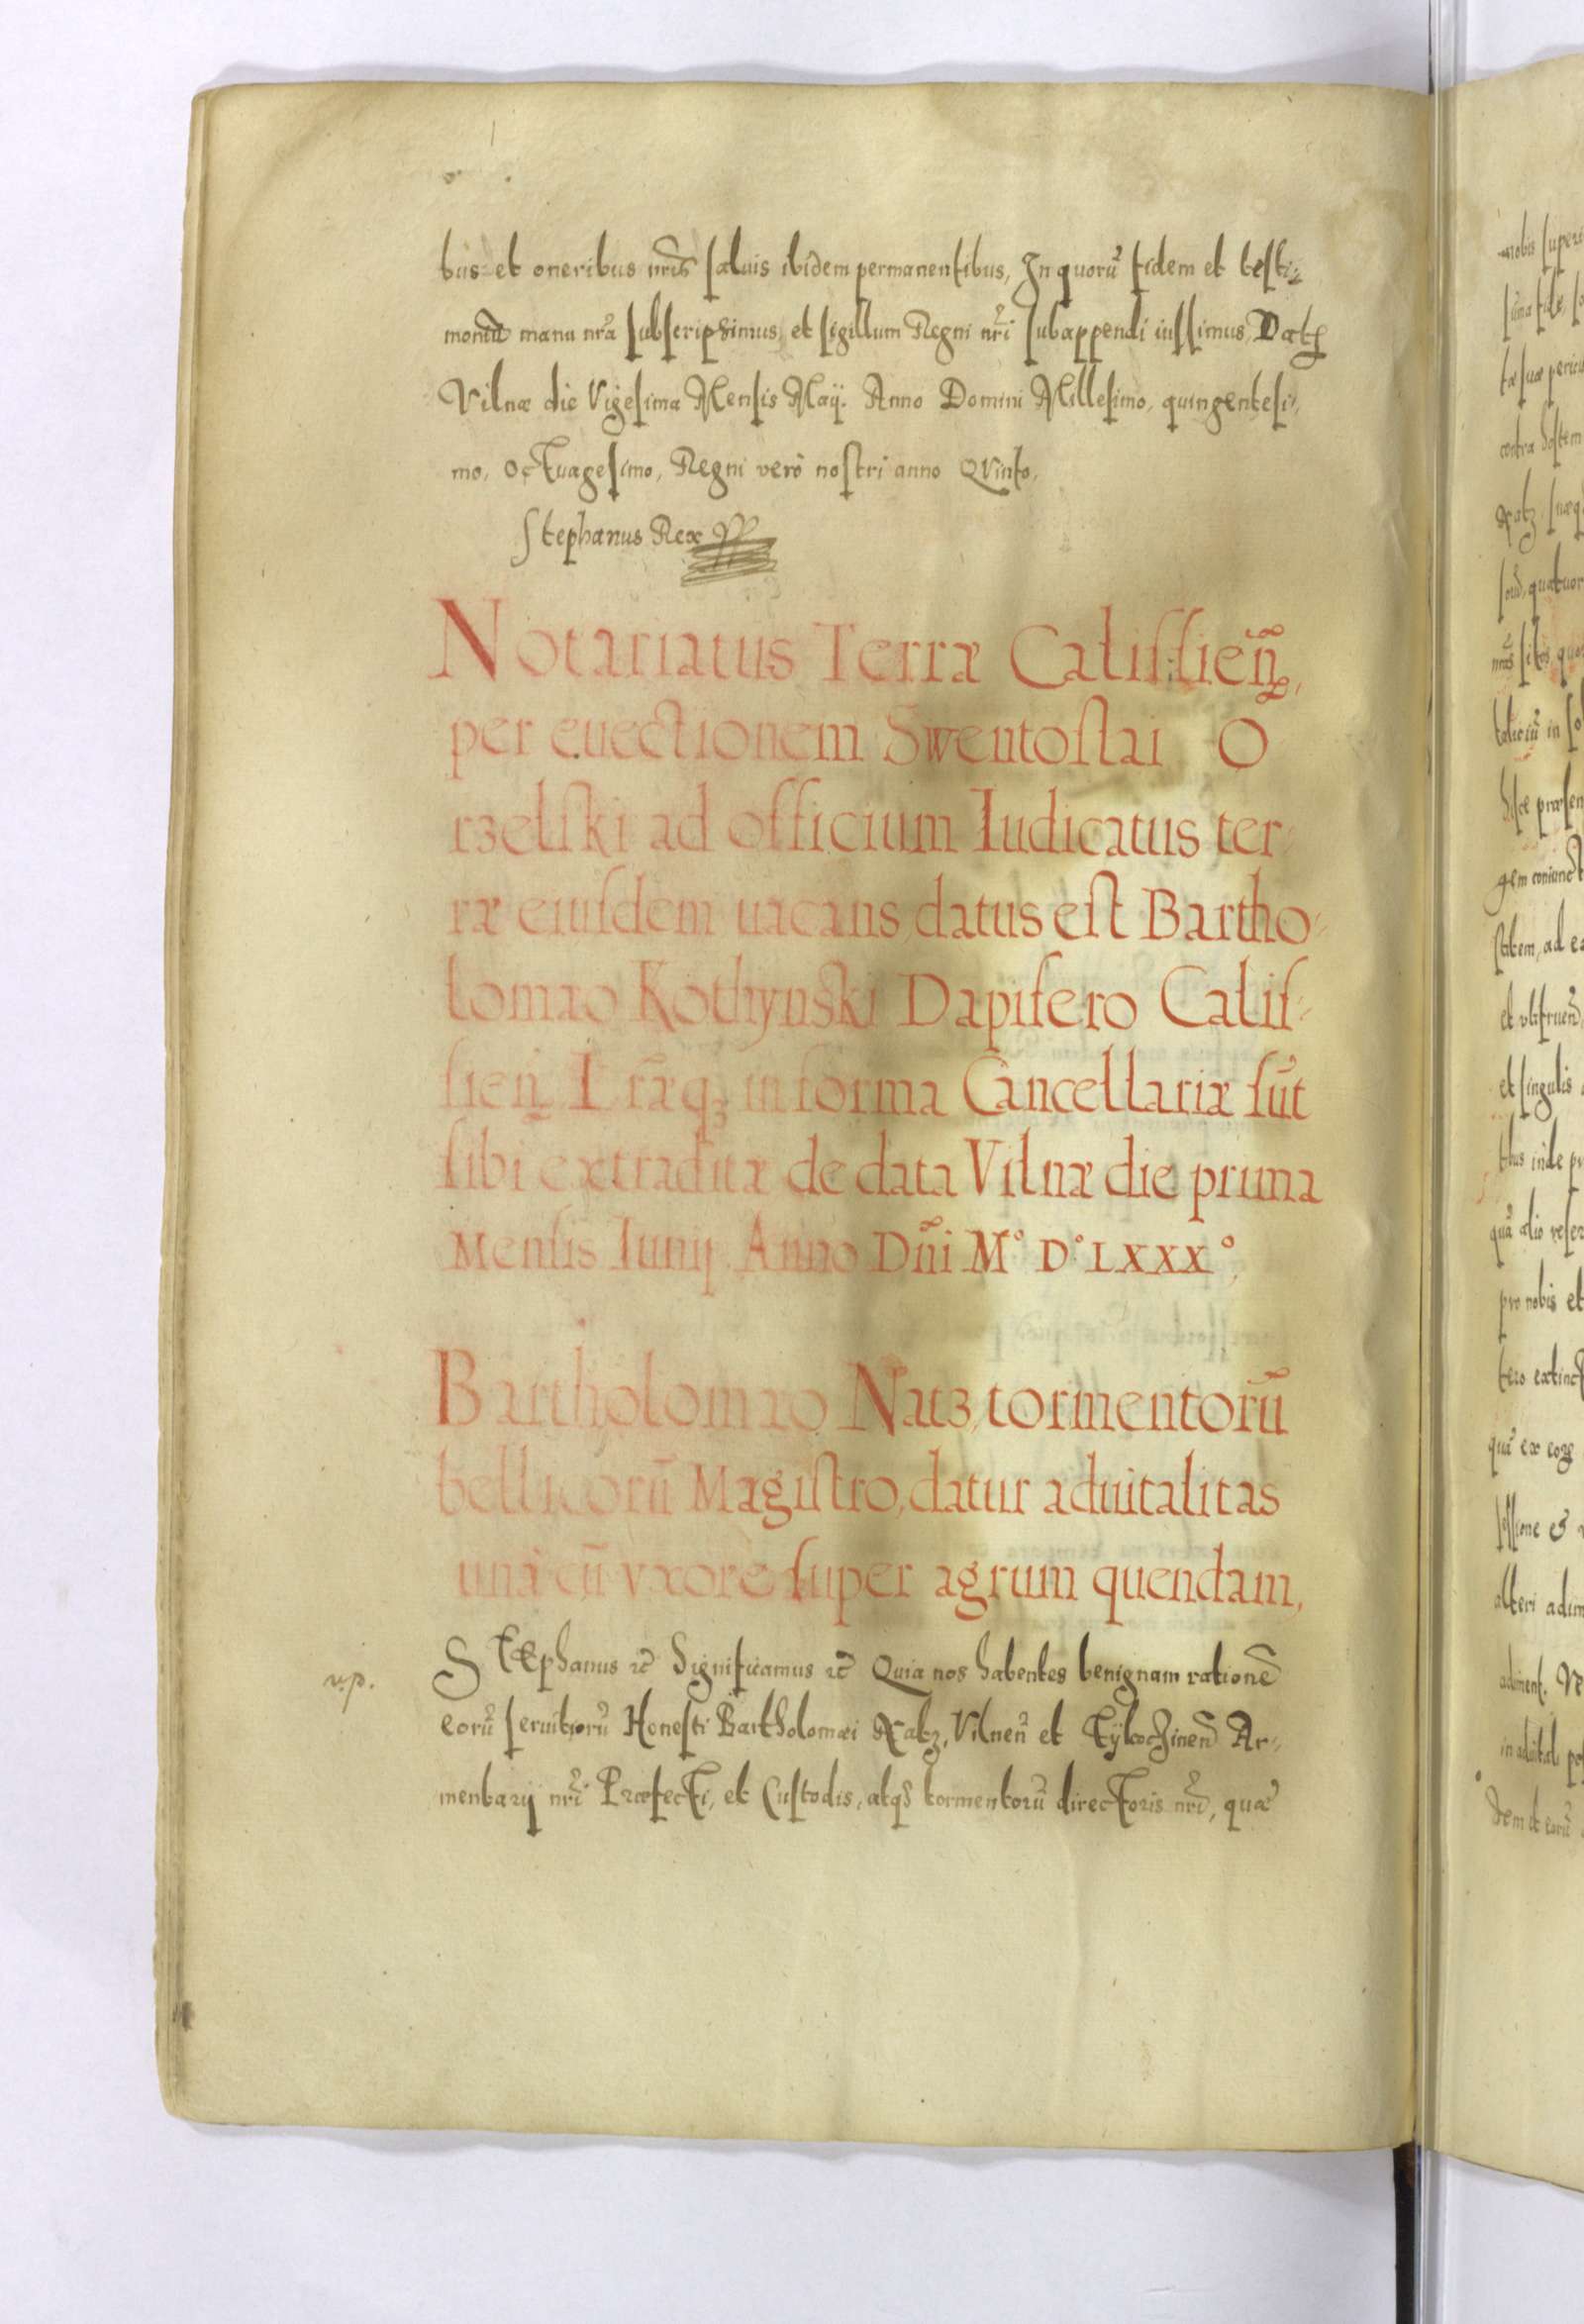 bus et oneribus nr̃is saluis ibidem permanentibus, In quorũ fidem et testi-
moniũ manu nr̃a subscripsimus, et sigillum Regni nr̃i subappendi iussimus, Dat
Vilnæ die Vigesima Mensis Maij. Anno Domini Millesimo, quingentesi-
mo, octuagesimo, Regni verò nostri anno Qvinto,
Stephanus Rex
Notariatus Terræ Calissieñ,
per euectionem Swentoslai O
rzelski ad officium Iudicatus ter-
ræ eiusdem uacans, datus est Bartho-
lomæo Kothynski Dapifero Calis-
sieñ. Lr̃æq; in forma Cancellariæ sũt
sibi extraditæ de data Vilnæ die prima
Mensis Iunij. Anno Dñi M° D° LXXX°,
Bartholomæo Natz, tormentorũ
bellicorũ Magistro, datur aduitalitas
unà cũ vxore super agrum quendam,
v.p.
Stephanus ꝛc̃ Significamus ꝛc̃ Quia nos habentes benignam rationẽ
eorũ seruitiorũ Honesti Bartholomæi Natz, Vilneñ et Tykoczineñ Ar-
mentarij nr̃i Præfecti, et Custodis, atqꝫ tormentorũ directoris nr̃i, quæ
nobis superi
contra hostem
quatuor
in
gem coniunct
et singulis
inde
alio
pro nobis et
tero extinct
alteri adim